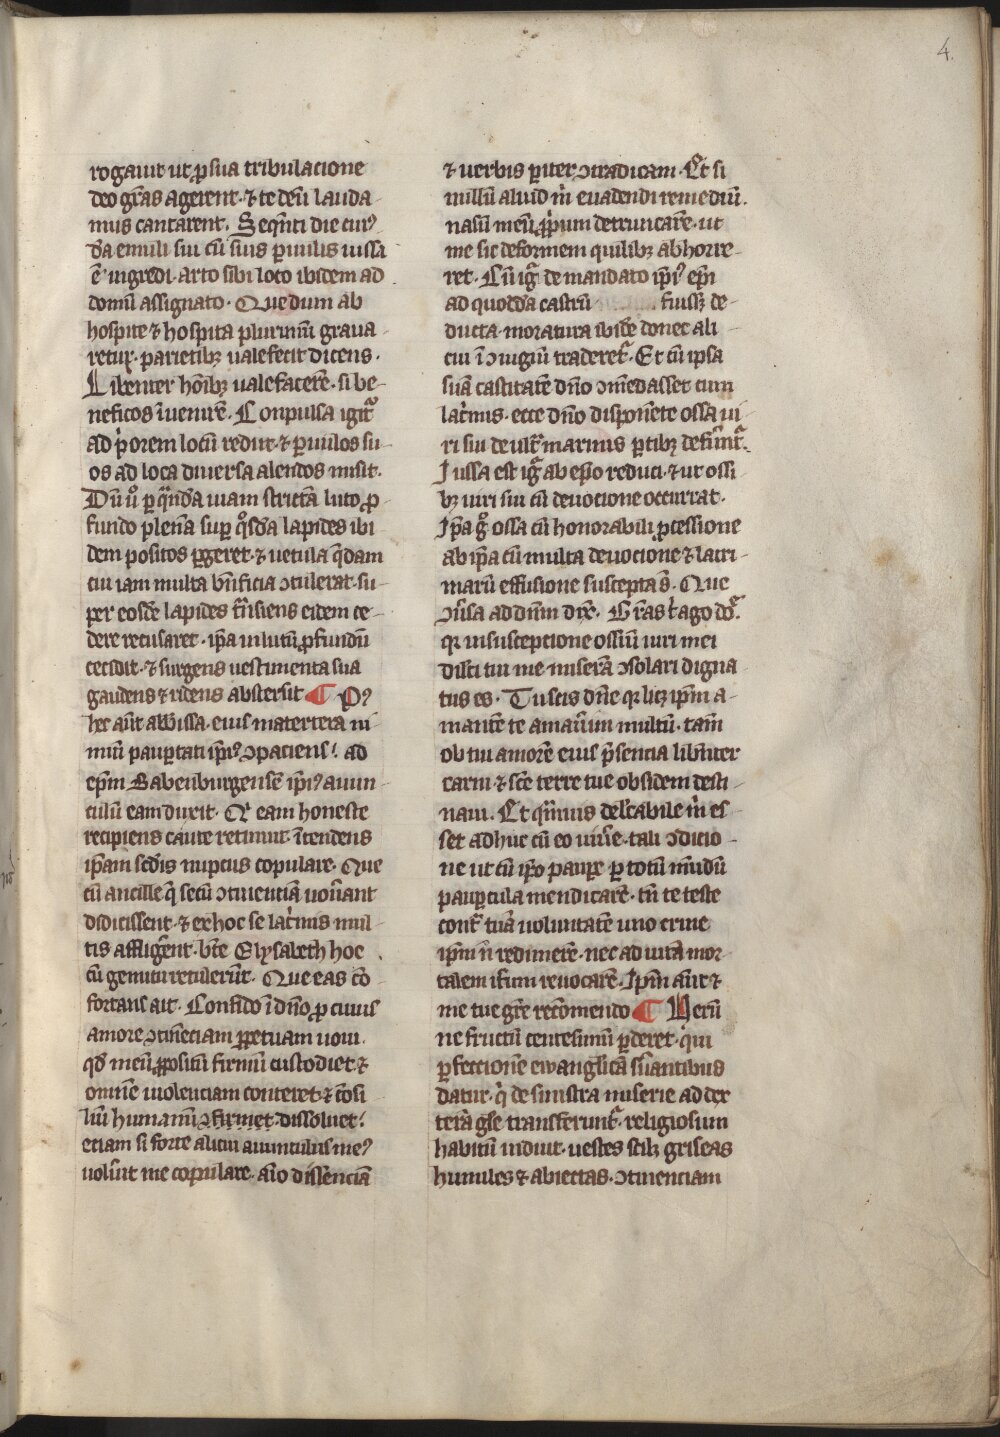 4.
rogauit ut ꝓ sua tribulacione
deo gr̄as agerent · ⁊ te deū lauda-
mus cantarent. Seqn̄ti die cuiꝰ-
dā emuli sui cū suis ꝑuulis iussa
ē ingredi · arto sibi loco ibidem ad
domū assignato · Que dum ab
hospite ⁊ hospita plurimū graua-
retur · parietibꝫ ualefecit dicens ·
Libenter hoībꝫ ualefacerē · si be-
neficos īuenirē. Conpulsa igit᷑
ad p̍orem locū rediit · ⁊ ꝑuulos su-
os ad loca diuersa alendos misit.
Dū uͦ ꝑ quādā uiam strictā luto ꝓ
fundo plenā suꝑ qͦsdā lapides ibi
dem positos ꝑgeret · ⁊ uetula q̄dam
cui iam multa bn̄ficia ↄtulerat · su-
per eosdē lapides trāsiens eidem ce-
dere recusaret · ip̄a in lutū ꝓfundū
cecidit · ⁊ surgens uestimenta sua
gaudens ⁊ ridens abstersit ¶ Pꝰ
hec aūt abbissa · eius matertera ni-
miū pauꝑtati ip̄iꝰ ↄpaciens · ad
ep̄m Babenburgensē ip̄iꝰ auun-
culū eam duxit · Qͥ eam honeste
recipiens caute retinuit · ītendens
ip̄am scd̄is nupciis copulare · Que
cū ancille q̄ secū ↄtinentiā uou̅ant
didicissent · ⁊ ex hoc se lac̍mis mul-
tis affliger̄ent · bt̄e Elysabeth hoc
cū gemitu retulerūt · Que eas cō-
fortans ait · Confido ī dn̄o ꝓ cuius
amore ↄtinēciam ꝑpetuam uoui ·
qd̄ meū ꝓpositū firmū custodiet · ⁊
omnē uiolenciam conteret · ⁊ cōsi-
liū humanū ↄfirmet · dissoluet ·
etiam si forte alicui auunculus meꝰ
uolūit me copulare · aīo dissenciā
⁊ uerbis ꝑiter ↄtradicam · Et si
nullū aliud m̍ euadendi remediū.
nasū meū ꝓprium detruncarē · ut
me sic deformem quilibꝫ abhorre-
ret · Cū ig̍ de mandato ip̄iꝰ ep̄i
ad quoddā castrū fuissꝫ de-
ducta · moratura ibidē donec ali
cui ī ↄiugiū traderet᷑ · Et cū ipsa
suā castitatē dn̄o ↄmēdasset cum
lac̍mis · ecce dn̄o disponēte ossa ui-
ri sui de ult͛marinis ꝑtibꝫ defūnt᷑.
Iussa est ig̍ ab ep̄o reduci · ⁊ ut ossi
bꝫ uiri sui cū deuocione occurrat ·
Ip̄a gͦ ossa cū honorabili ꝓcessione
ab ip̄a cū multa deuocione ⁊ lacri-
marū effusione suscepta s̄ · Que
ↄūsa ad dn̄m dix̄ · Gr̄as t̍ ago dō
qꝛ in susceptione ossiū uiri mei
dilc̄i tui me miserā ↄsolari digna-
tus es · Tu scis dn̄e qꝛ licꝫ ip̄m a-
mantē te amauerim multū · tam̄
ob tui amorē eius p̄sencia libēter
carui · ⁊ sc̄e terre tue obsidem desti-
naui · Et quāuis delc̄abile m̍ es-
set adhuc cū eo uiu̅e · tali ↄdicio-
ne ut cū ip̄o paupe ꝑ totū mūdū
pauꝑcula mendicarē · tn̄ te teste
cont͛ tuā uoluntatē uno crine
ip̄m n̄ redimerē · nec ad uitā mor-
talem it͛um reuocarē · Ip̄m aūt ⁊
me tue gr̄e recōmendo ¶ Verū
ne fructū centesimū ꝑderet · qui
ꝑfectionē ewangelicā s̄uantibus
datur · q̍ de sinistra miserie ad dex-
terā glē transferunt᷑ · religiosum
habitū induit · uestes scilꝫ griseas
humiles ⁊ abiectas · ↄtinenciam